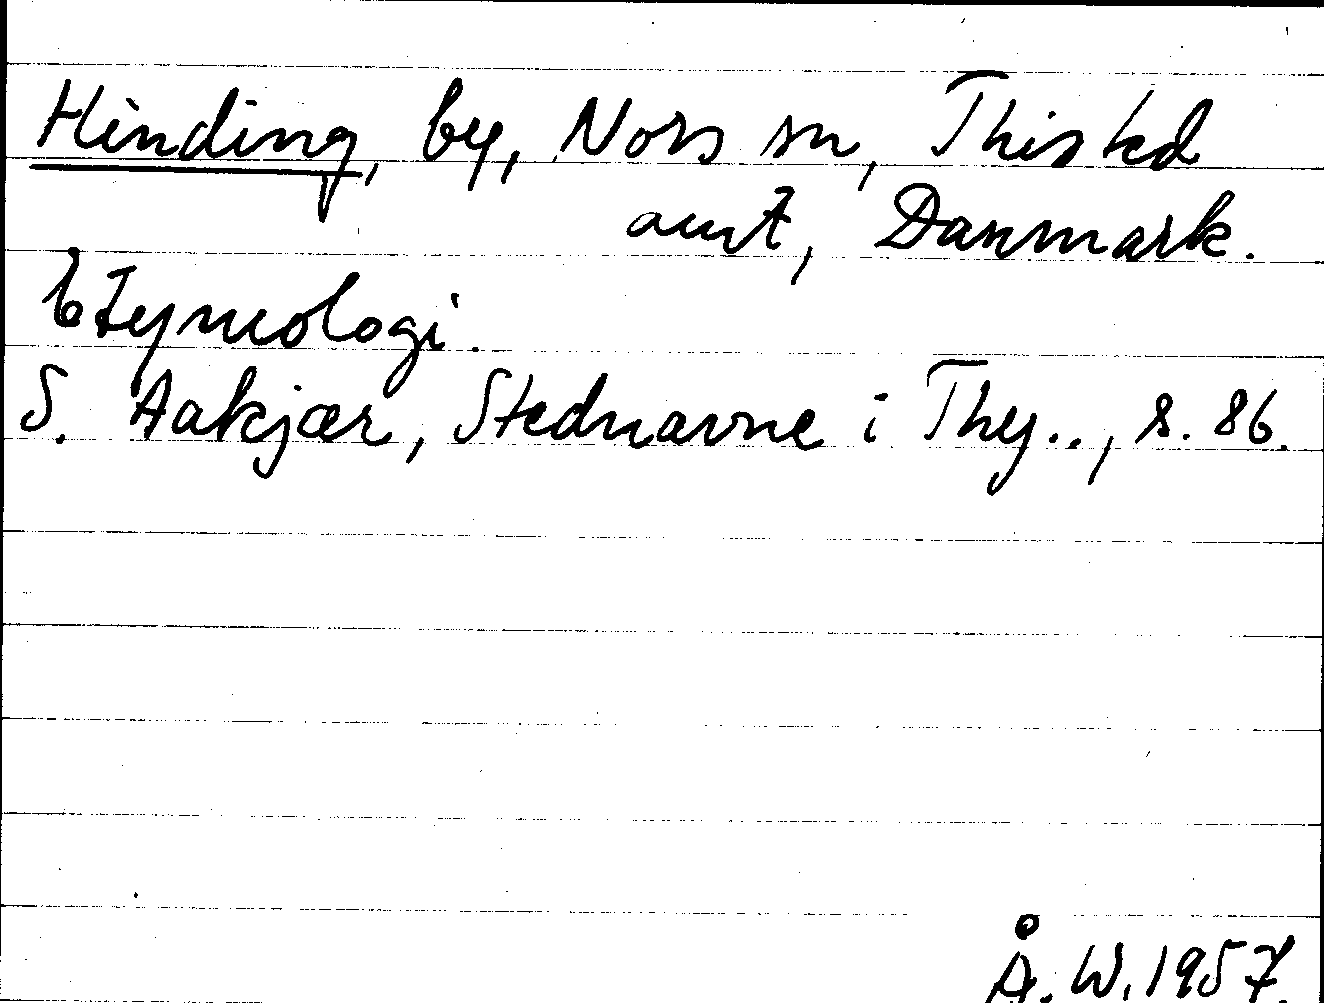 Hinding, by, Nors sn, Thisted
amt, Danmark.
Etymologi.
S. Aakjær, Stednavne i Thy.., s. 86.
Å. W. 1957.